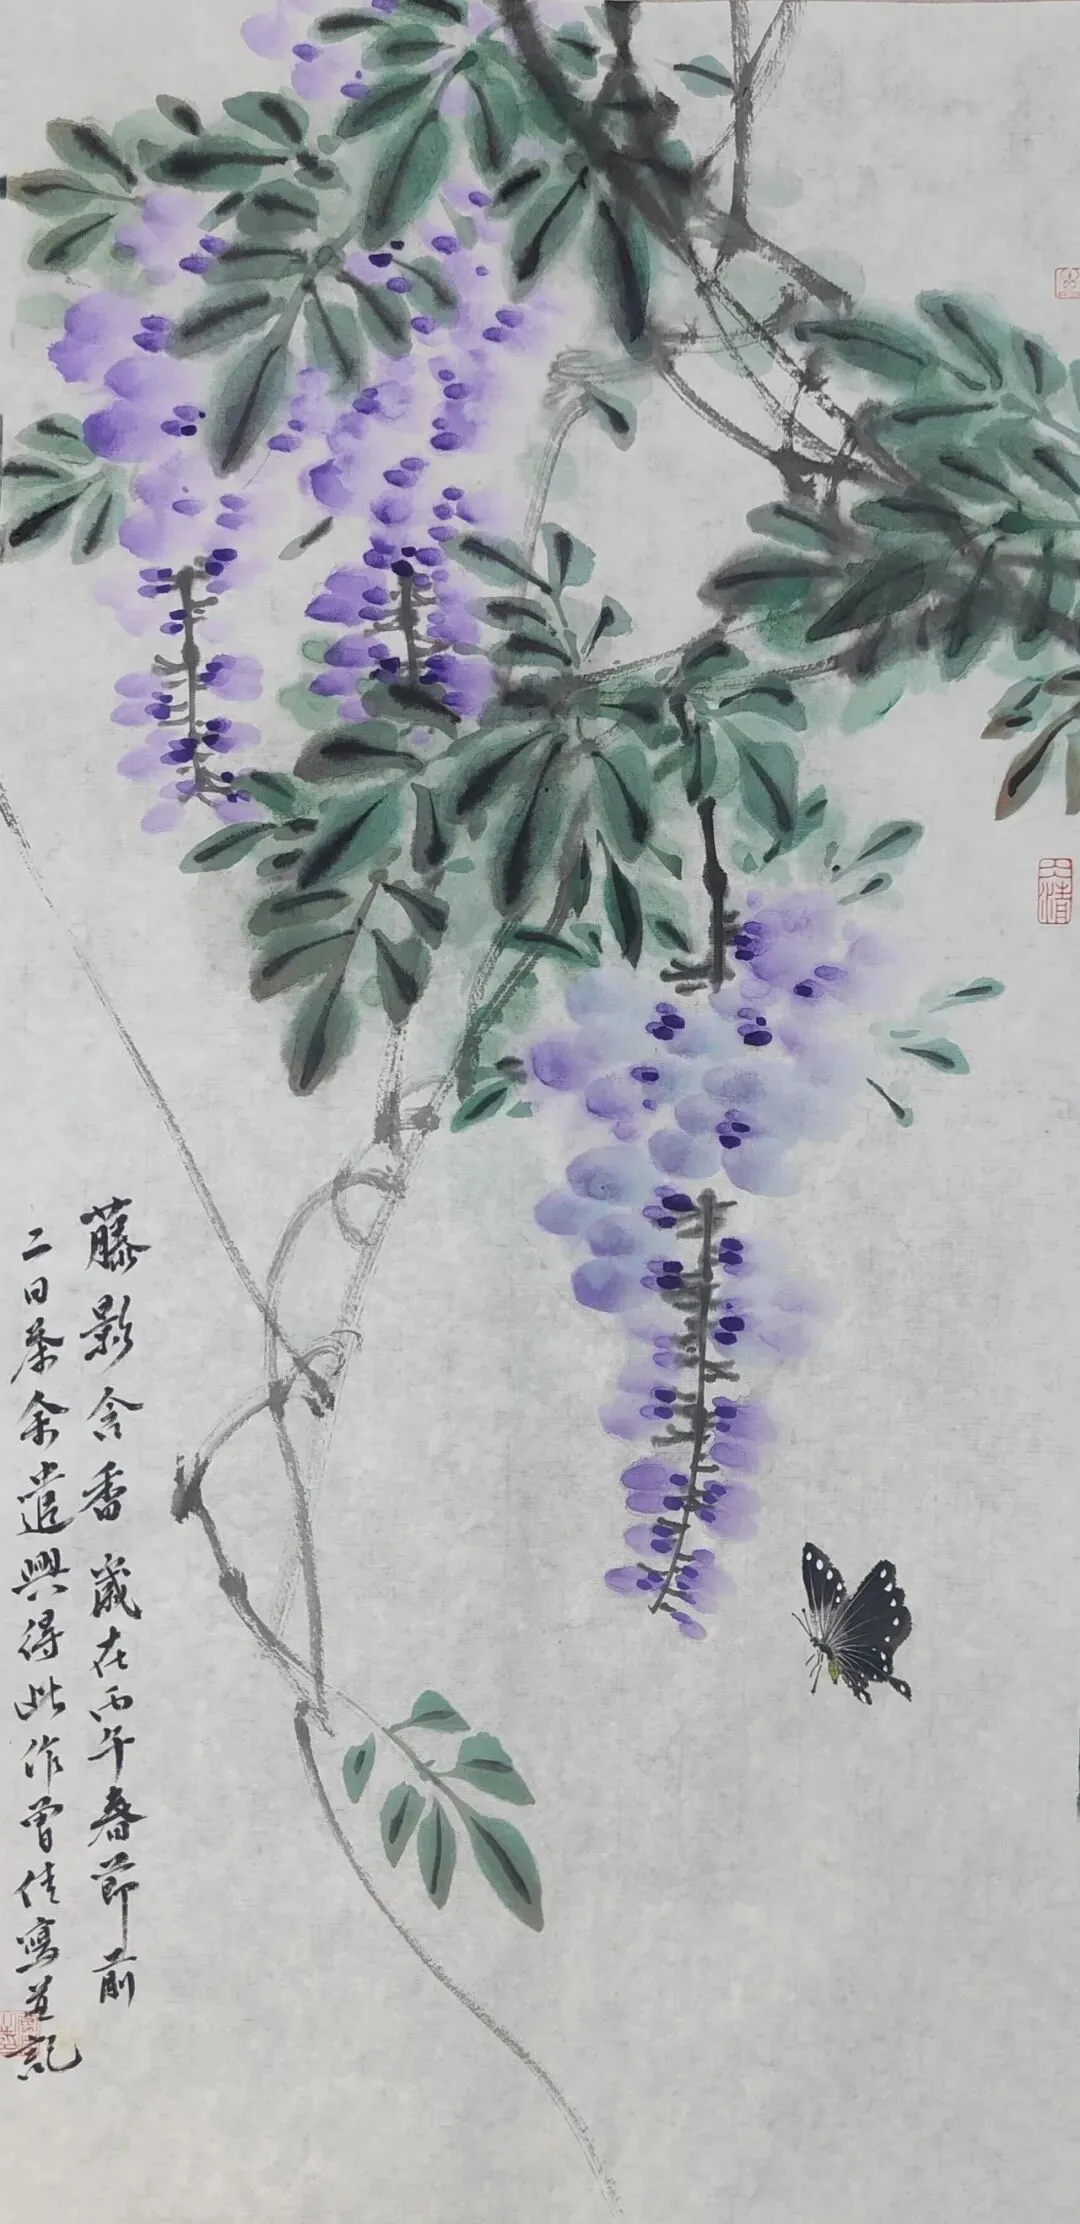 藤影含香歲在丙午春節前
二日茶余遣興得此作曾佳寫並記